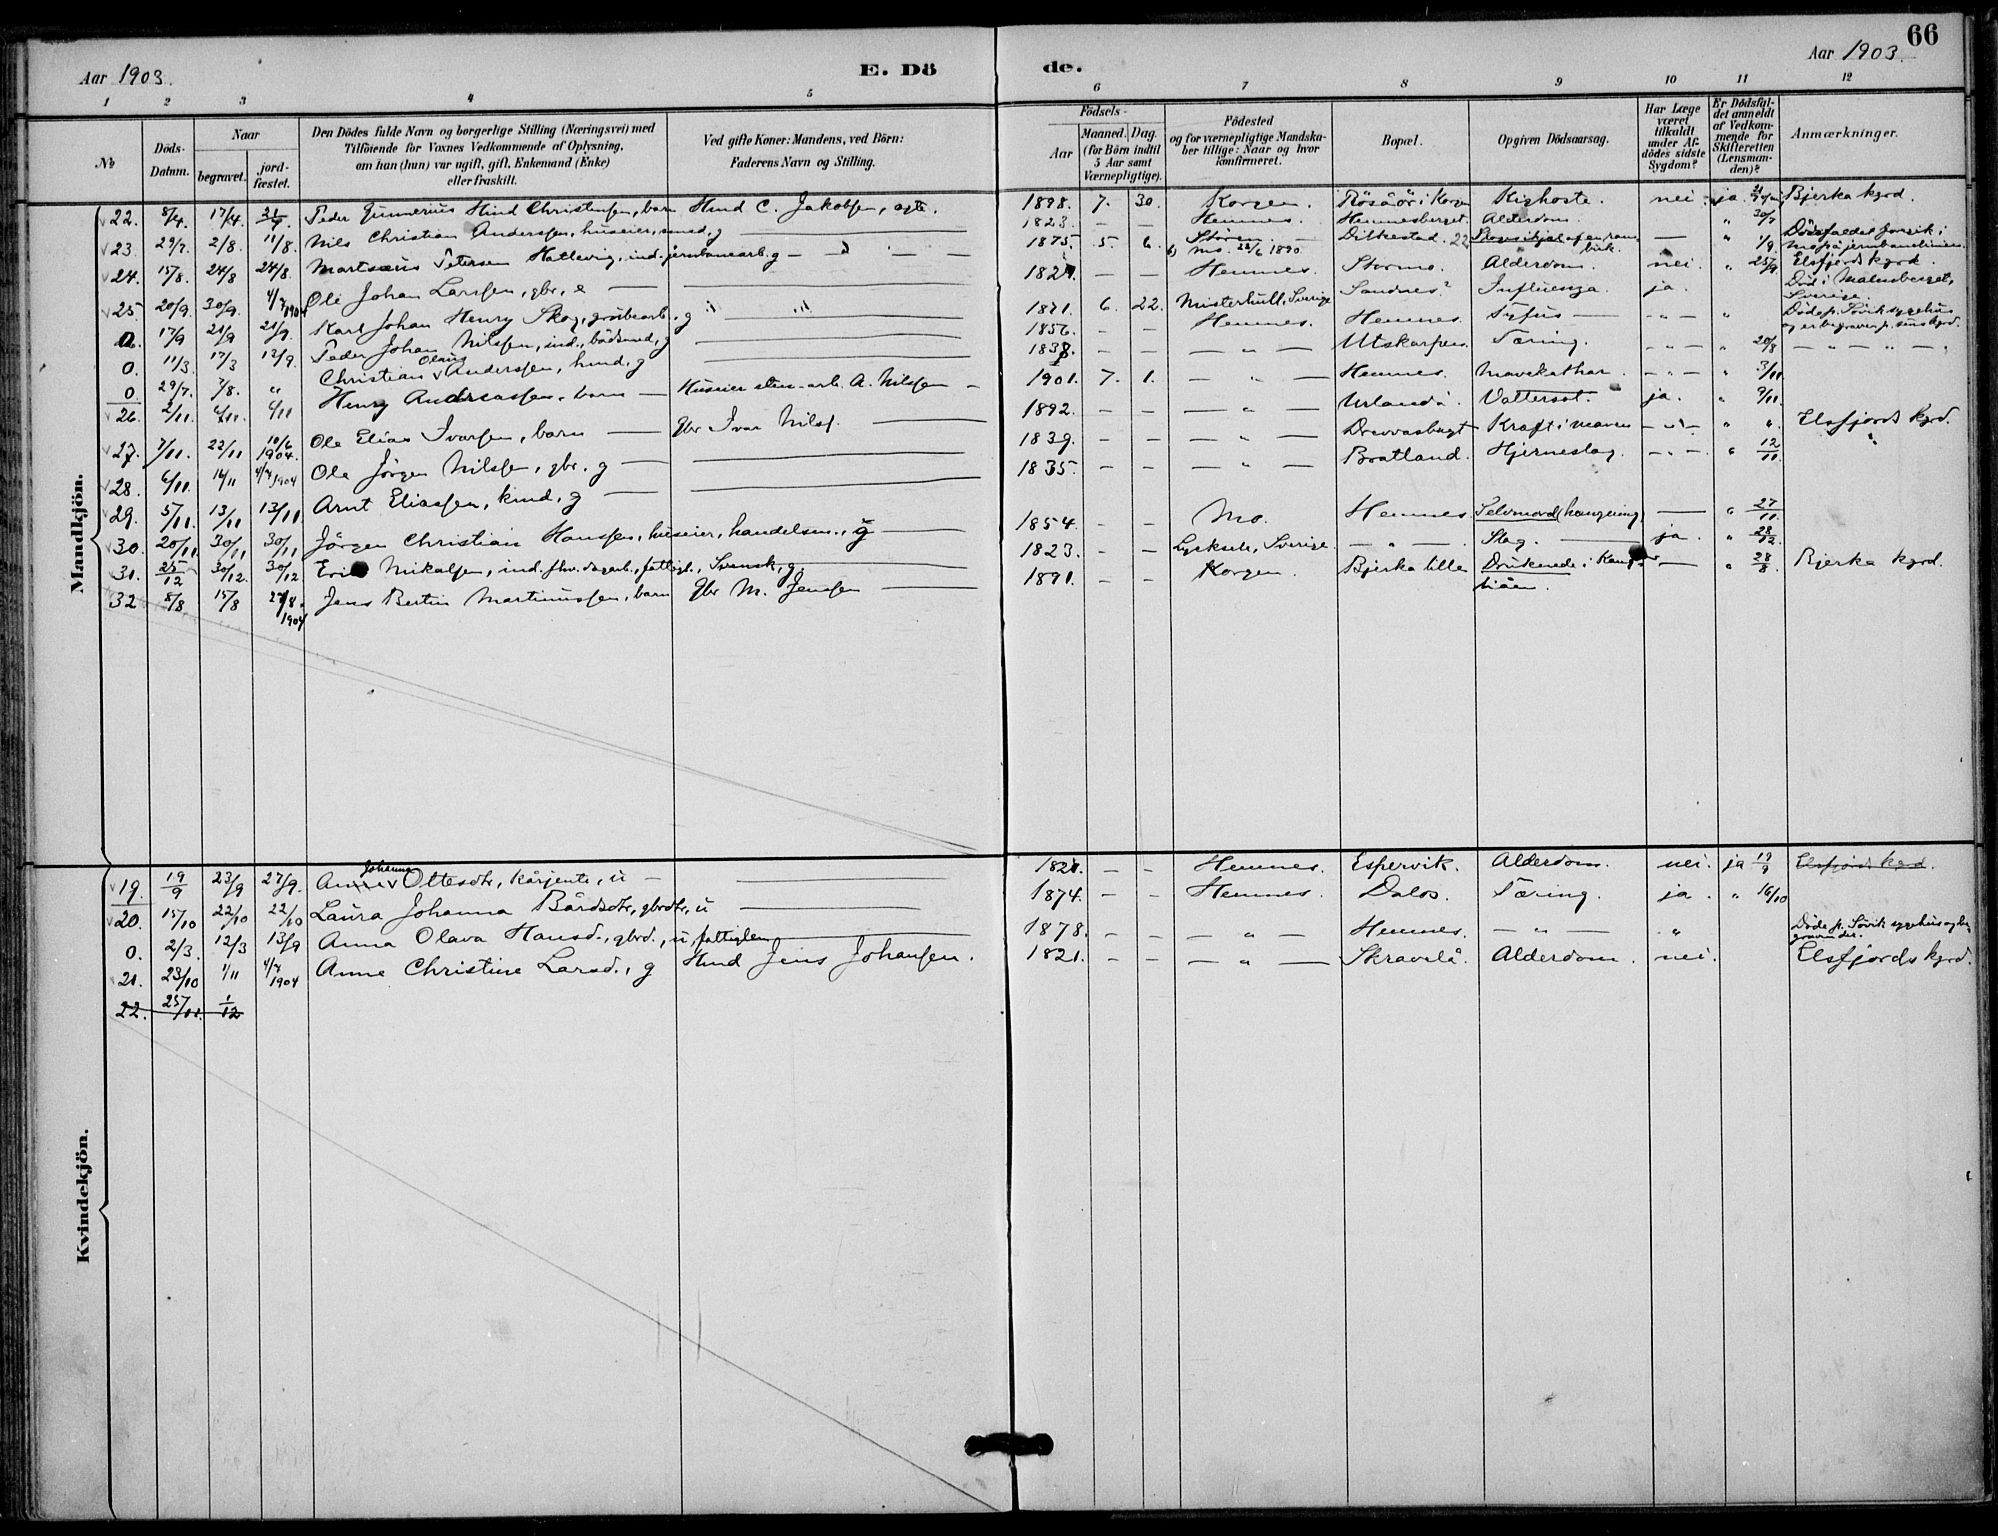 66
Aar 1903.
E. Dö
de.
Aar 1903.
1 2 3 4 5 6 7 8 9 10 11 12
No
Döds-
Datum.
Naar
begravet.
jord-
fæstet.
Den Dödes fulde Navn og borgerlige Stilling (Næringsvei) med
Tilföiende for Voxnes Vedkommende af Oplysning,
om han (hun) var ugift, gift, Enkemand (Enke)
eller fraskilt.
Ved gifte Koner: Mandens, ved Börn:
Faderens Navn og Stilling.
Födsels-
Aar
Maaned. Dag.
(for Börn indtil
5 Aar samt
Værnepligtige).
Födested
og for værnepligtige Mandska-
ber tillige: Naar og hvor
konfirmeret.
Bopæl.
Opgiven Dödsaarsag.
Har Læge
været
tilkaldt
under Af-
dödes sidste
Sygdom?
Er Dödsfal-
det anmeldt
af Vedkom-
mende for
Skifteretten
(Lensman-
den)?
Anmærkninger.
Mandkjön.
22. 8/4. 17/4. Peder Gunnerius Hind Christensen, barn Hmd C. Jakobsen, ægte. 1898. 7. 30. Korgen. Røsåör i Korgen Kighoste. nei. ja. Bjerka kgrd.
23. 29/7. 2/8. 11/8. Nils Christian Anderssen, huseier, smed, g 1823. — — Hemnes. Hemnesberget. Alderdom. — " 30/7
24. 15/8. 24/8 24/8. Petersen Hatlevig, ind. jernbanearb. g 1875. 5. 6. Støren. Mo. 1890. Dilkestad. — " 1/9. Dödsfaldet foregik i
25. 20/9. 30/9. 4/7 1904 Ole Johan Larssen, gbr, e 1821. — — Hemnes. Stormo. Alderdom. nei. " 25/9 Elsfjords kgrd.
0. 17/6 21/9 21/9. Karl Johan Henry Skog, grubearb., g 1871. 6. 22. Misterhult, Sverige Sandnes? Influenza. ja. Död i Malmberget,
Sverige
0. 11/3. 17/3 12/9. Peder Johan Nilssen, ind., bådsmed, g 1856. — — Hemnes. Hemnes. Tyfus — " Döde p. Sövik sygehus
og er begraven p. sins kgrd.
0. 29/7. 7/8. " Christian Olaus Anderssen, hmd, g 1838. — — " Utskarpen. Tæring. " 20/8
26. 2/11. 6/11. 6/11 Henry Andreassen, barn — Huseier sten-arb. A. Nilssen 1901. 7. 1. — " — Hemnes. Mavekathar. " 3/11.
27. 7/11. 22/11 10/6 1904. Ole Elias Ivarssen, barn — gbr Ivar Nilss. 1892. — — " Urlandå. Vattersot. ja. " 9/11. Elsfjords kgrd.
28. 6/11. 14/11 4/7 1904 Ole Jörgen Nilssen, gbr., g 1839. — — " Drevvasbugt Kræft i maven " "
29. 5/11. 13/11 13/11 Arnt Eliassen, kmd, g 1835. — — " Bratland. Hjerneslag. " 12/11
30. 20/11. 30/11 30/11 Jörgen Christian Hanssen, huseier, handelsm., g 1854. — — Mo. Hemnes. Selvmord (hængning) — " 27/11.
31. 25/12 30/12. 30/12 Mikalsen, ind. fhv. dagarb., fattigl., Svensk, g. 1823. — — Lycksele, Sverige. — " — Slag. ja. " 28/12
32 8/8 15/8 1904 Jens Bertin Martinussen, barn gbr M. Jenssen 1891. — — Korgen. Bjerka lille Druknede i — " 28/8. Bjerka kgrd.
Kvindekjön.
19. 19/9 23/9 27/9. Johanna Ottesdtr, kårjente, u — 1821. — — Hemnes. Espervik. Alderdom. nei. ja 19/9 Elsfjords kgd.
20. 15/10 22/10 22/10 Laura Johanna Bårdsdtr, gbrdtr, u 1874. — — Hemnes. Dalos. Tæring. ja. " 16/10
0. 2/3. 12/3 13/9 Anna Olava Hansd., gbrd., u, fattiglem 1878. — — " Hemnes. — " — " Döde p. Sövik sygehus og be-
graven der.
21. 23/10 1/11 4/7 1904 Anne Christine Larsd., g Hmd Jens Johansen. 1821. — — " Skravlå. Alderdom. nei. Elsfjords kgrd.
22. 25/11. 1/12